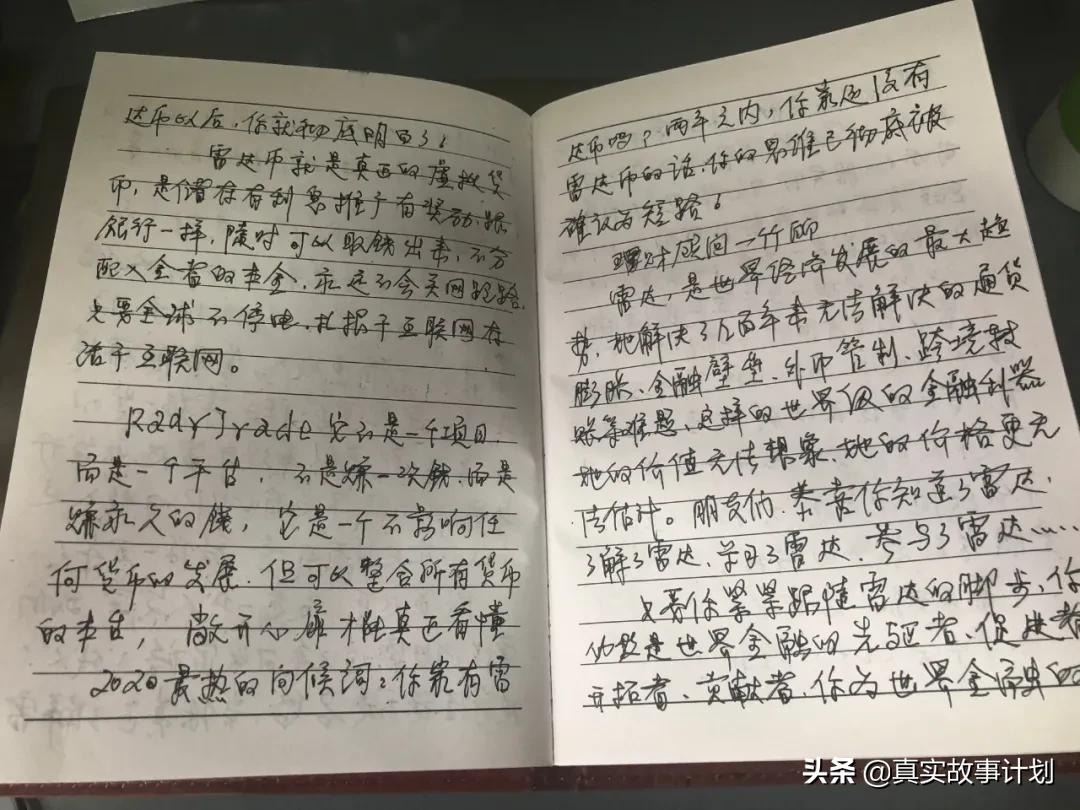 达币以后，你就彻底明白了！
雷达币就是真正的虚拟货
币，是储存有利息推广有奖励，跟
银行一样，随时可以取钱出来，不分
配入金者的本金，永远不会关网跑路，
只要全球不停电，扎根于互联网存
活于互联网。
RadrTrade它不是一个项目，
而是一个平台，不是赚一次钱，而是
赚永久的钱，它是一个不影响任
何货币的发展，但可以整合所有货币
的平台，敞开心扉才能真正看懂
2020最热的问候词：你家有雷
达币吗？两年之内，你家还没有
雷达币的话，你的思维已彻底被
确认为短路！
理财顾问一竹阳
雷达，是世界经济发展的最大趋
势，她解决了几百年来无法解决的通货
膨胀、金融壁垒、外币管制、跨境转
账等难题，这样的世界级的金融利器
她的价值无法想象，她的价格更无
法估计。朋友们，恭喜你知道了雷达，
了解了雷达，学习了雷达，参与了雷达……
只要你紧紧跟随雷达的脚步，你
仍然是世界金融的先驱者、促进者
开拓者、贡献者，你为世界金融的
头条 @真实故事计划